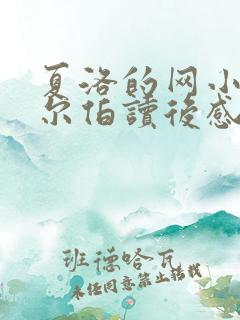 夏洛的网小
尔怕讀後感
班德哈瓦
未经同意禁止转载